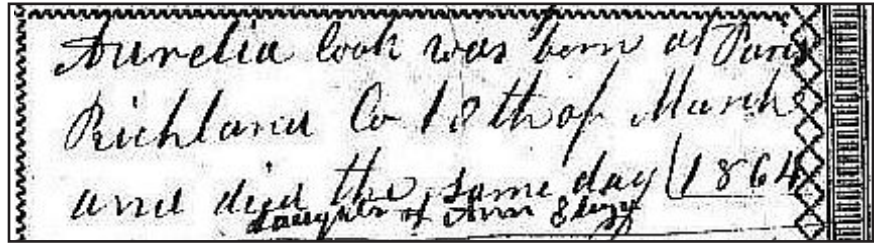 Aurelia Cook was born at Paris
Richland Co 18th of March
and died the same day 1864
daughter of Ann Eliza